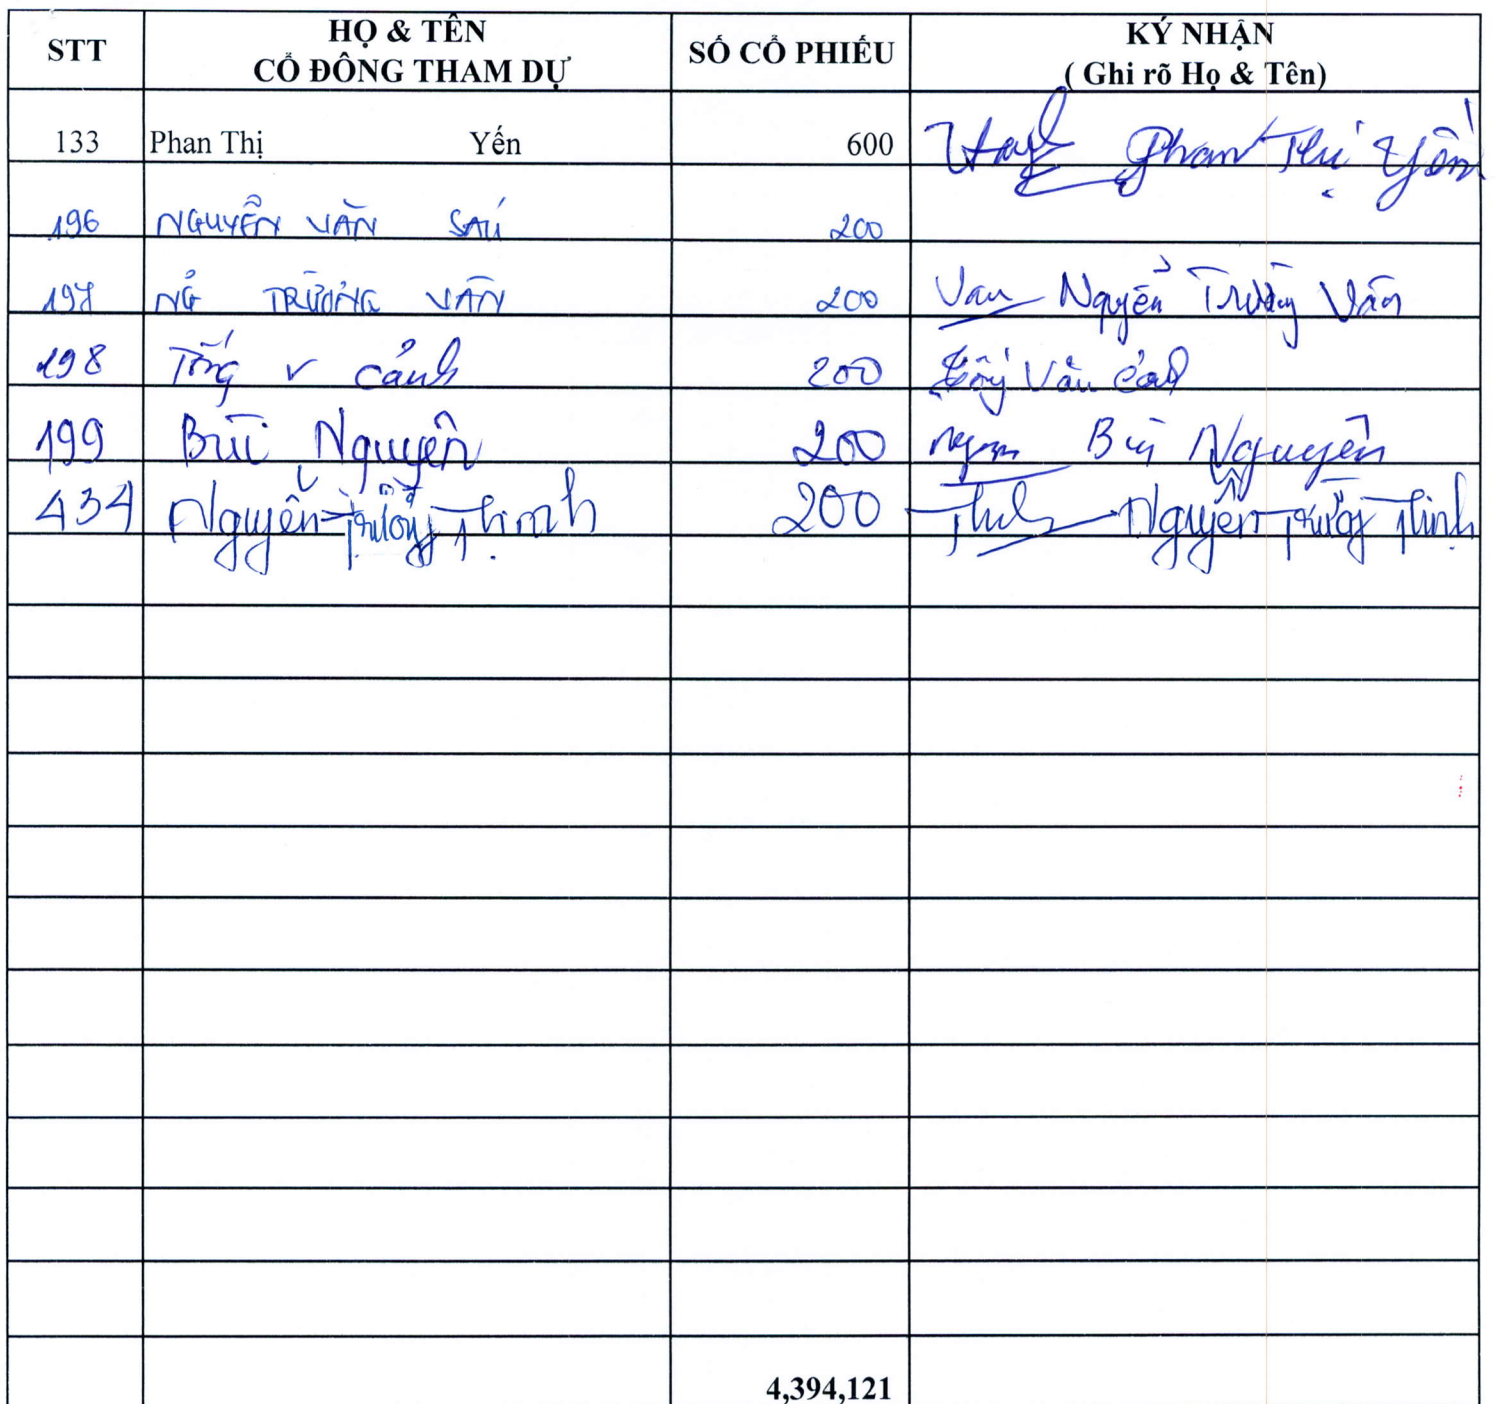 STT HỌ & TÊN CỔ ĐÔNG THAM DỰ SỐ CỔ PHIẾU KÝ NHẬN ( Ghi rõ Họ & Tên)
133 Phan Thị Yến 600 Phan Thị Yến
196 NGUYỄN VĂN SÁU 200
197 NG TRƯỜNG VÂN 200 Van Nguyễn Trường Vân
198 Tống v cảnh 200 Tống Văn
199 Bùi Nguyên 200 Bùi Nguyên
434 Nguyễn Trường Thịnh 200 Nguyễn Trường Thịnh
4,394,121